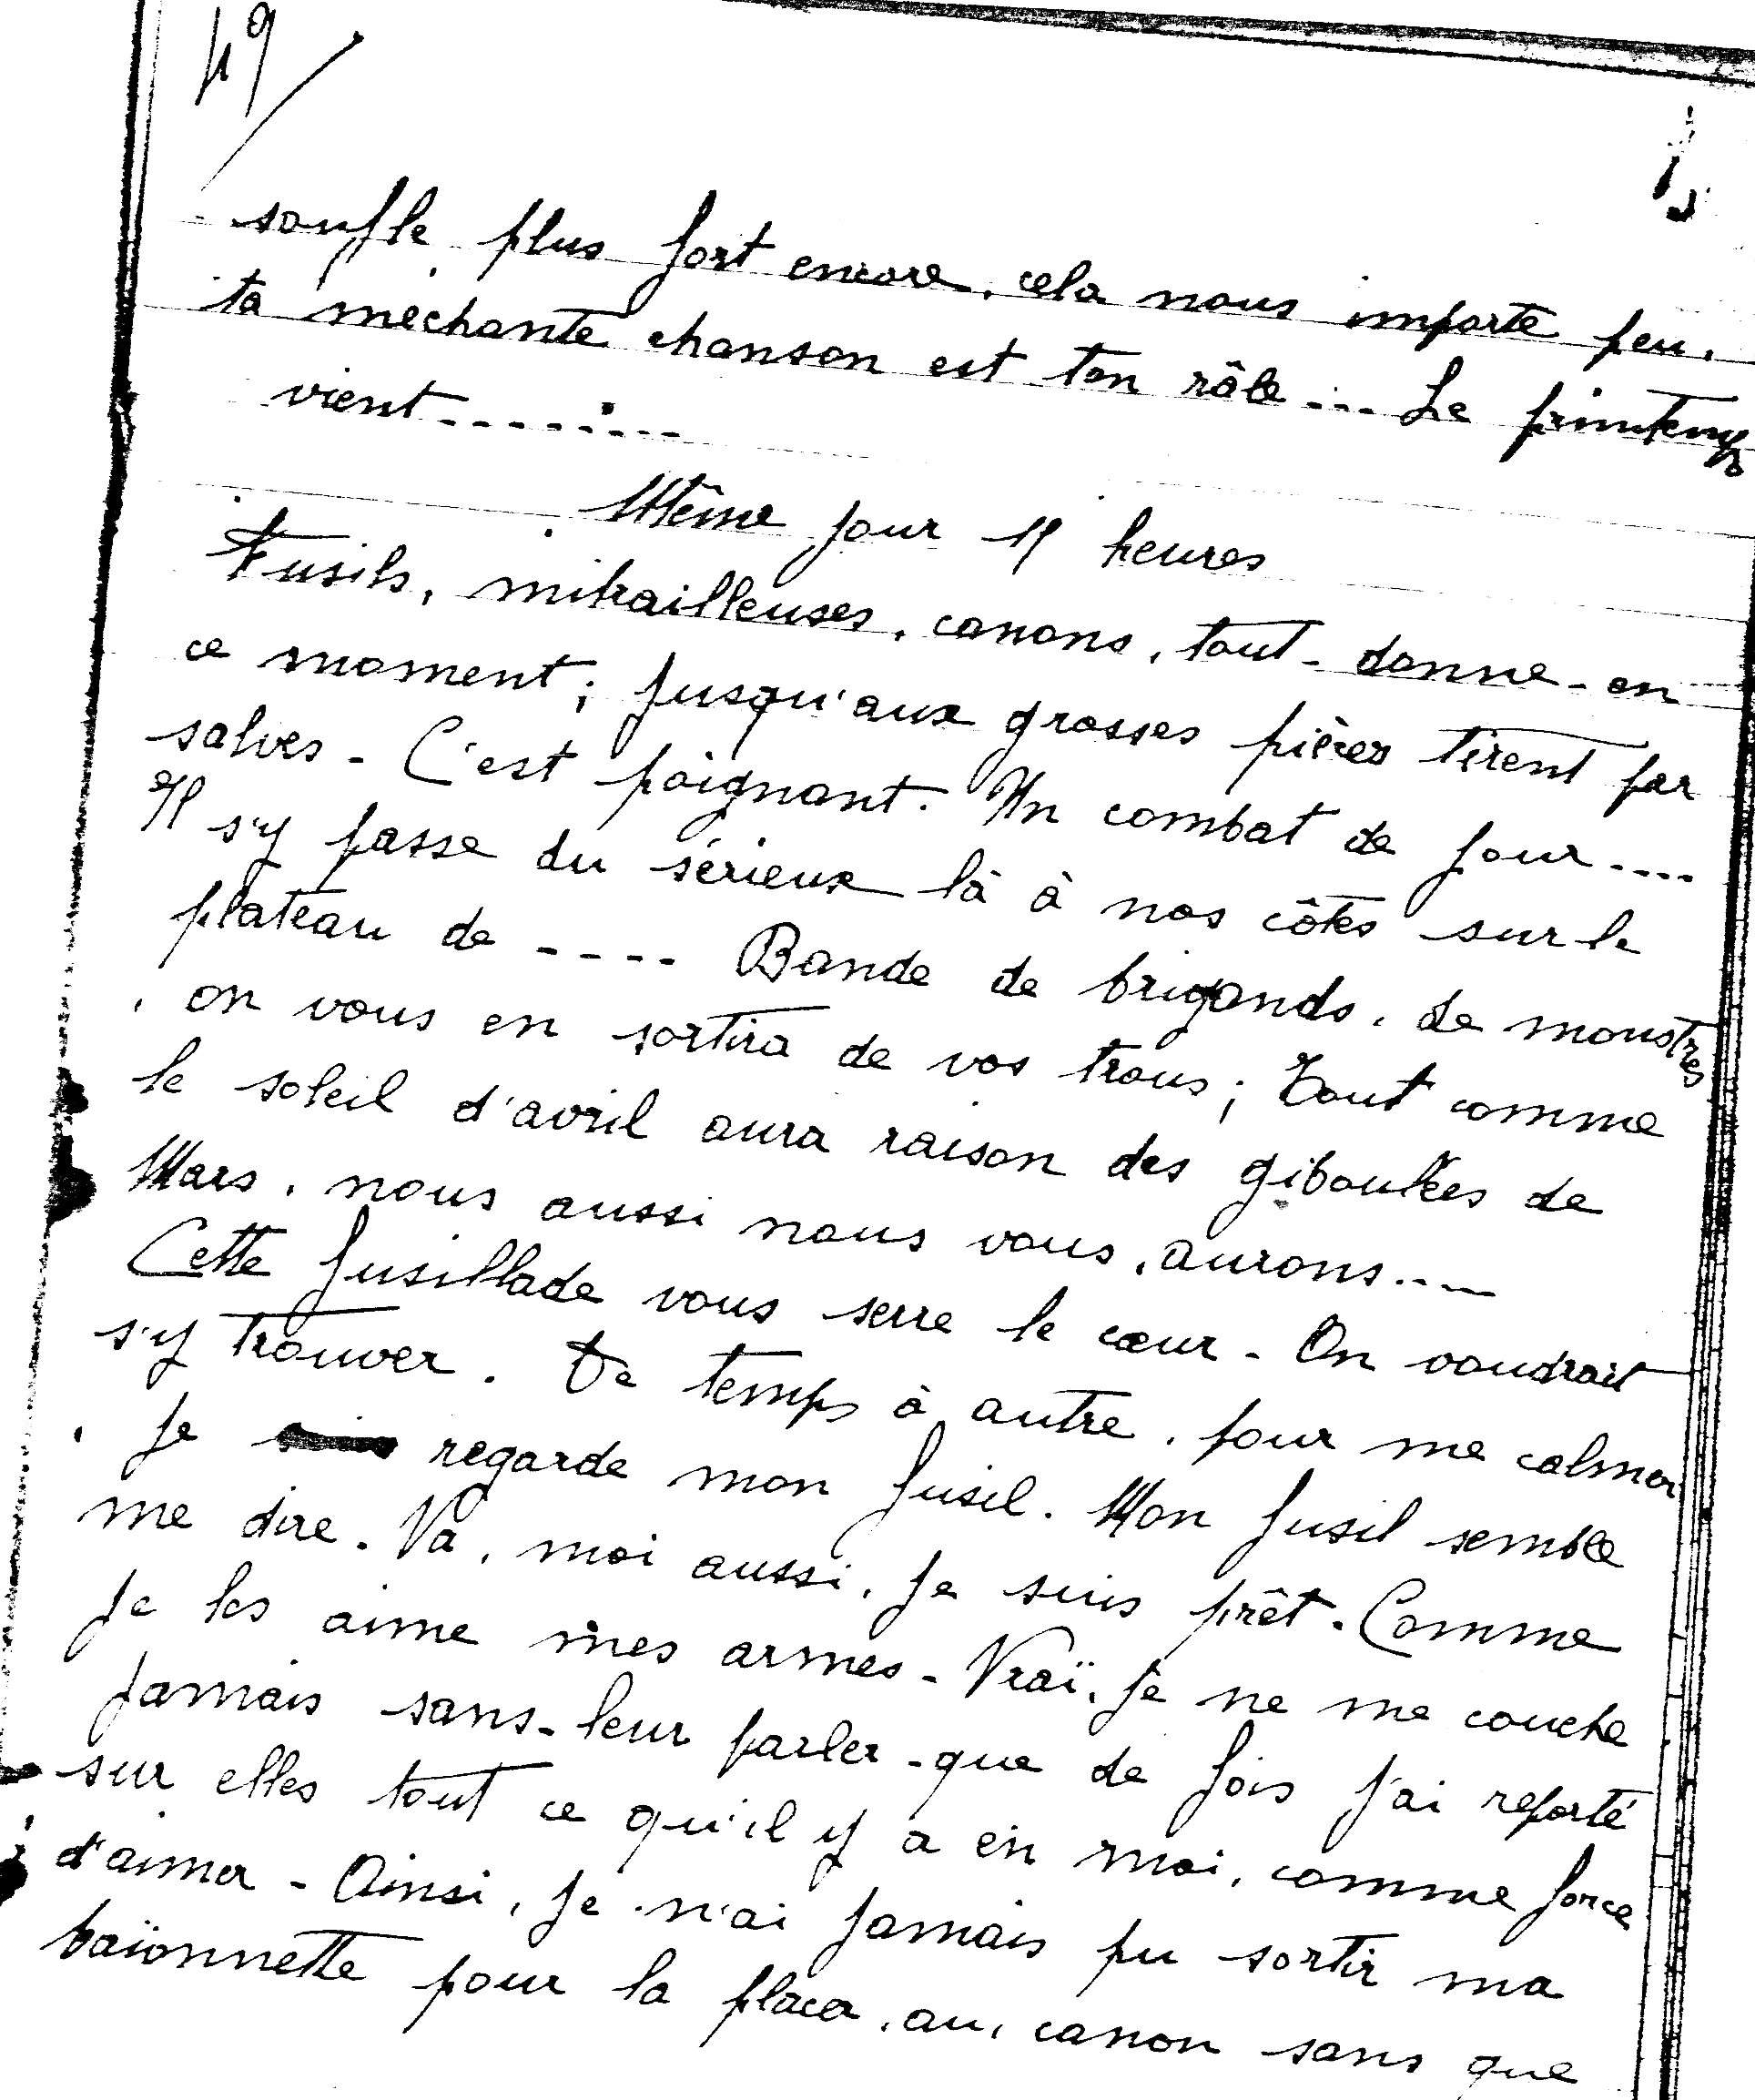 49/
soufle plus fort encore, cela nous importe peu.
ta méchante chanson est ton rôle... Le printemps
vient........
Même jour 11 heures
Fusils, mitrailleuses, canons, tout-donne-en
ce moment; jusqu'aux grosses pièces tirent par
salves - C'est poignant. Un combat de jour....
Il s'y passe du sérieux là à nos côtés sur le
plateau de ---- Bande de brigands, de monstres
, on vous en sortira de vos trous; Tout comme
le soleil d'avril aura raison des giboulées de
Mars, nous aussi nous vous, aurons....
Cette fusillade vous serre le cœur - On voudrait
s'y trouver. De temps à autre, pour me calmer
, je regarde mon fusil. Mon fusil semble
me dire. Va, moi aussi, je suis prêt. Comme
je les aime mes armes - Vraï, je ne me couche
jamais sans-leur parler - que de fois j'ai reporté
sur elles tout ce qu'il y a en moi, comme force
d'aimer - Ainsi, je n'ai jamais pu sortir ma
baïonnette pour la placer, au, canon sans que